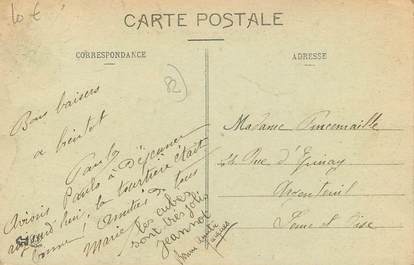 10 €
CARTE POSTALE
CORRESPONDANCE
ADRESSE
82
Bons baisers
a bientot
Paulo
Avions Paulo à Déjeuner
aujourd'hui, la tourtière était
bonne! Amitiés à tous
Marie
les cubes
sont très jolis
Jeannot
Madame Pincemaille
Rue d'Epinay
Argenteuil
Seine et Oise